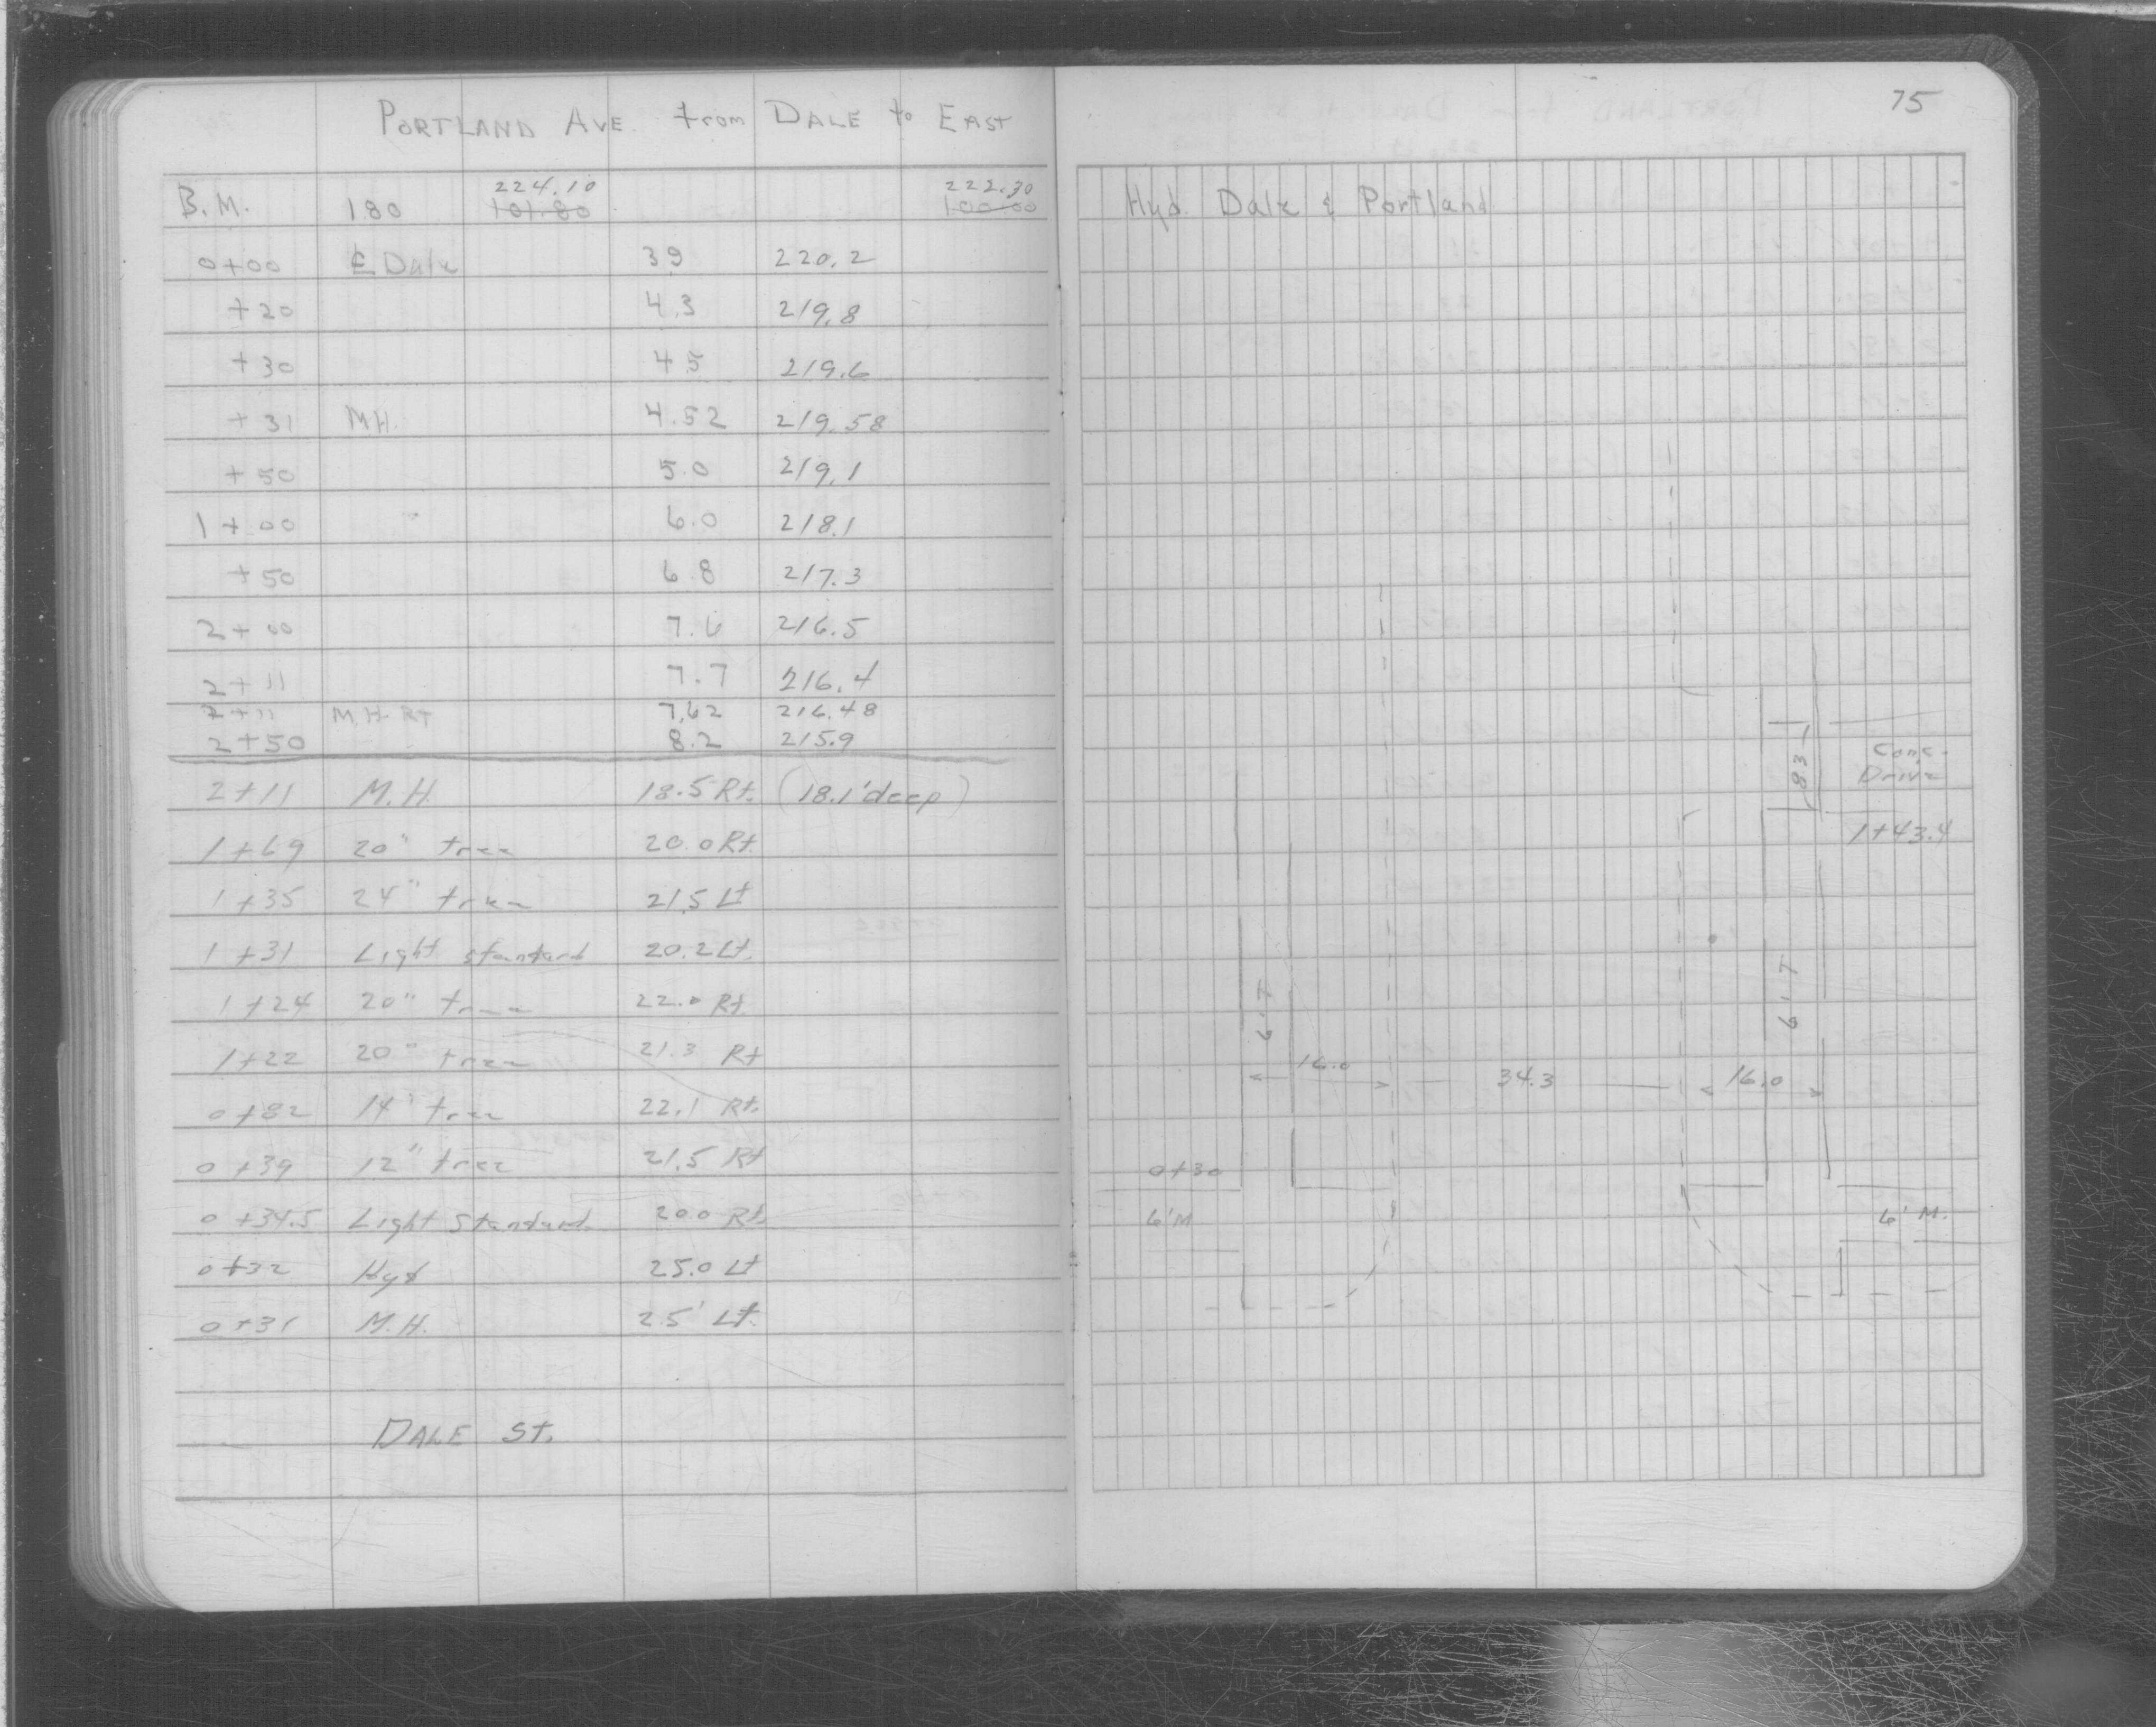 PORTLAND AVE. from DALE to EAST
224.10 222.30
B.M. 180 101.80 100.00
0+00 ₵ Dale 39 220.2
+20 4.3 219.8
+30 4.5 219.6
+31 MH. 4.52 219.58
+50 5.0 219.1
1+00 6.0 218.1
+50 6.8 217.3
2+00 7.6 216.5
2+11 7.7 216.4
2+11 M.H. RT 7.62 216.48
2+50 8.2 215.9
2+11 M.H. 18.5 Rt. (18.1' deep)
1+69 20" tree 20.0 Rt
1+35 24" tree 21.5 Lt
1+31 Light standard 20.2 Lt.
1+24 20" tree 22.0 Rt.
1+22 20" tree 21.3 Rt
0+82 14" tree 22.1 Rt.
0+39 12" tree 21.5 Rt
0+34.5 Light Standard. 20.0 Rt.
0+32 Hyd 25.0 Lt
0+31 M.H. 25' Lt.
DALE St.
75
Hyd. Dale & Portland
Conc.
Drive
1+43.4
6' T
6' T
16.0 34.3 16.0
0+30
6' M
6' M.